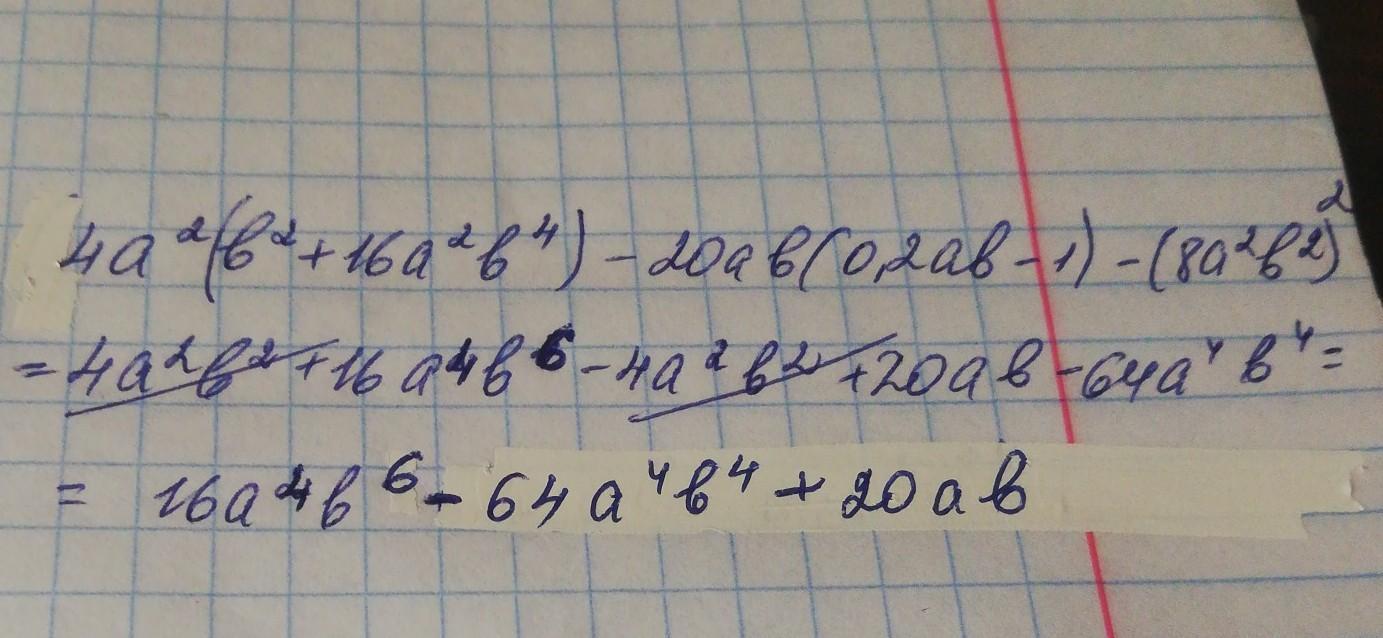 4a²(b²+16a²b⁴)-20ab(0,2ab-1)-(8a²b²)²
=4a²b²+16a⁴b⁶-4a²b²+20ab-64a⁴b⁴=
= 16a⁴b⁶-64a⁴b⁴+20ab